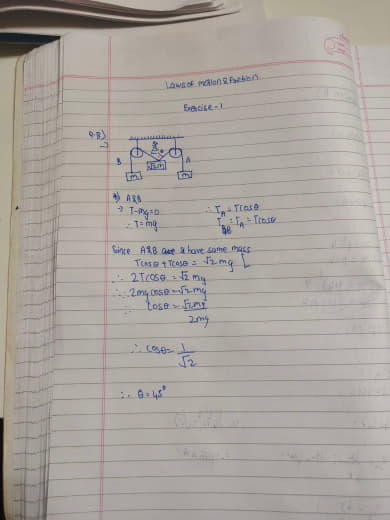 Laws of motion & friction
Exercise-1
Q.8)
→
θ θ
B A
√2m
m m
A&B
→ T-mg=0
∴ T=mg
∴ T_A = Tcosθ
T_B = T_A = Tcosθ
Since A&B have same mass
Tcosθ + Tcosθ = √2mg
∴ 2Tcosθ = √2 mg
∴ 2mgcosθ = √2 mg
∴ cosθ = √2mg
2mg
∴ cosθ = 1
√2
∴ θ = 45°